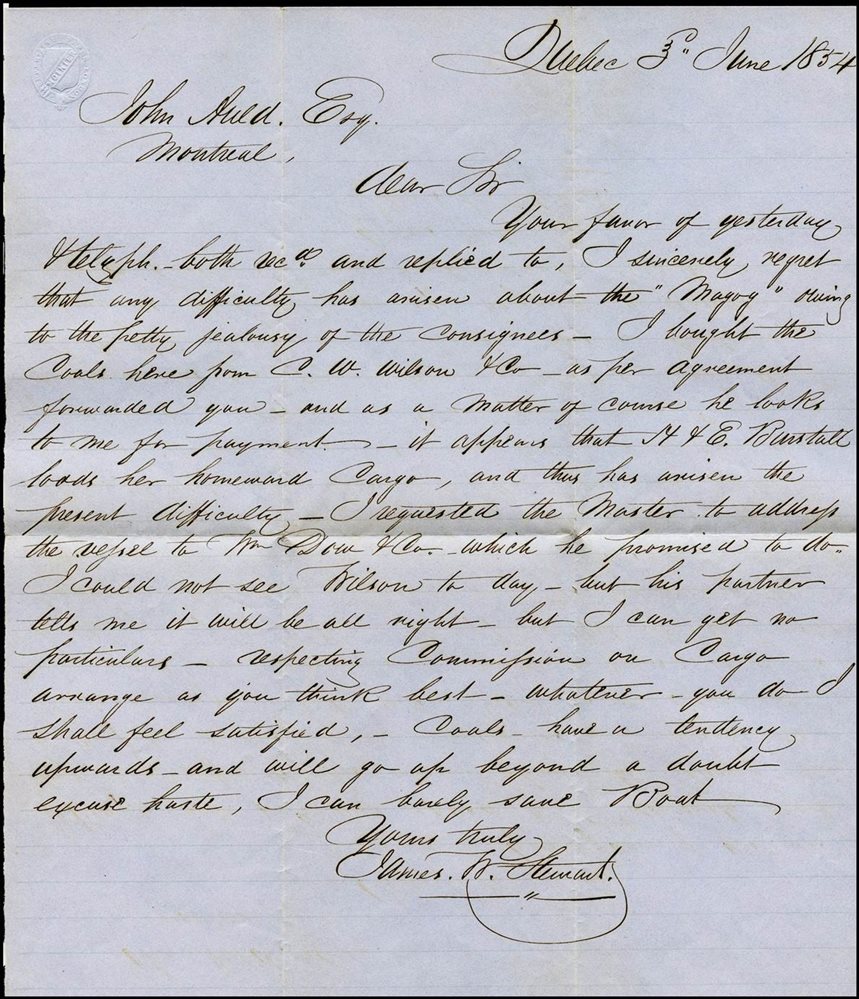 Quebec 3d June 1854
John Auld. Esq.
Montreal,
Dear Sir
Your favor of yesterday
& telgph. - both recd. and replied to, I sincerely regret
that any difficulty has arisen about the "Magog" owing
to the petty jealousy of the consignees - I bought the
Coals here from C. W. Wilson & Co - as per agreement
forwarded you - and as a matter of course he looks
to me for payment - it appears that H & E. Burstall
loads her homeward Cargo, and thus has arisen the
present difficulty - I requested the Master to address
the vessel to Wm Dow & Co. - which he promised to do -
I could not see Wilson to day - but his partner
tells me it will be all right - but I can get no
particulars - respecting Commission on Cargo
arrange as you think best - whatever - you do I
shall feel satisfied, - Coals - have a tendency
upwards - and will go up beyond a doubt
excuse haste, I can barely save Boat
Yours truly
James. W. Stewart.